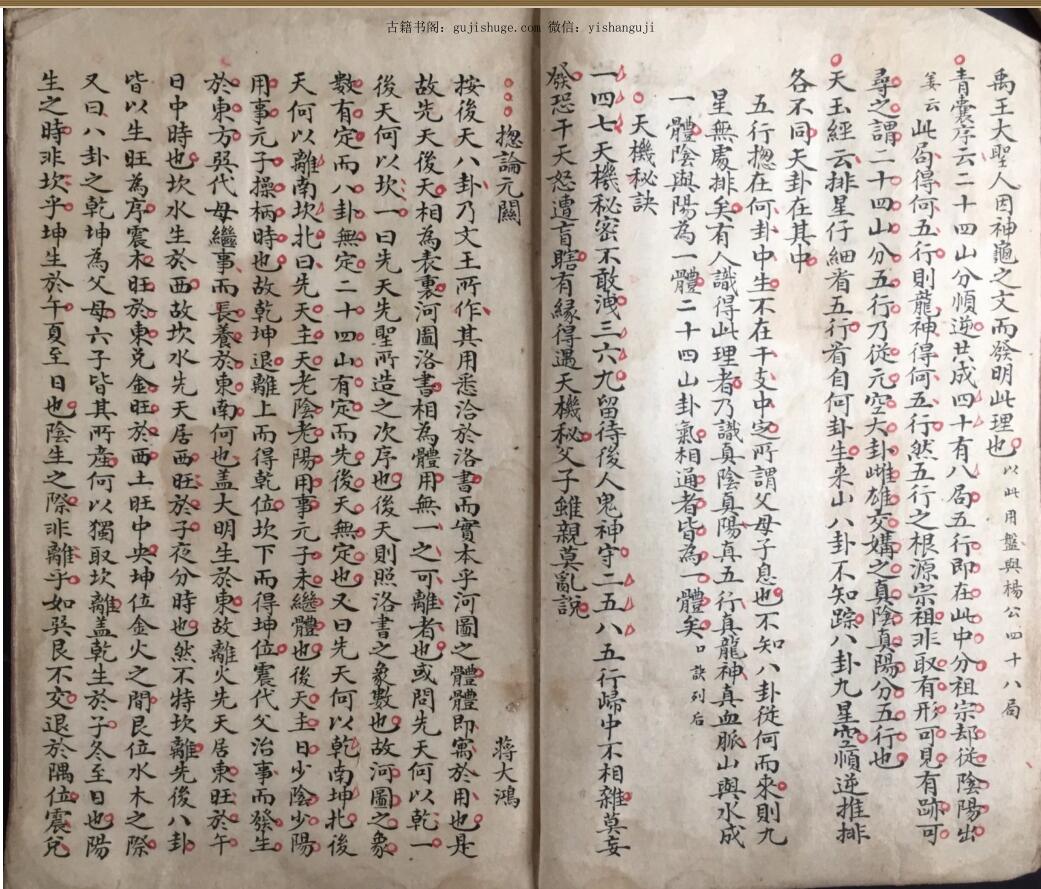 古籍书阁：gujishuge.com 微信：yishanguji
禹王大聖人因神龜之文而發明此理也以此用盤與楊公四十八局
青囊序云二十四山分順逆共成四十有八局五行即在此中分祖宗却從陰陽出
姜云此局得何五行則龍神得何五行然五行之根源宗祖非取有形可見有跡可
尋之謂二十四山分五行乃從元空大卦雌雄交媾之真陰真陽分五行也
天玉經云排星仔細看五行看自何卦生來山八卦不知踪八卦九星空順逆推排
各不同天卦在其中
五行揔在何卦中生不在干支中定所謂父母子息也不知八卦從何而來則九
星無處排矣有人識得此理者乃識真陰真陽真五行真龍神真血脈山與水成
一體陰與陽為一體二十四山卦氣相通者皆為一體矣口訣列后
天機秘訣
一四七天機秘密不敢洩三六九留待後人鬼神守二五八五行歸中不相雜莫妄
發恐干天怒遭盲瞎有緣得遇天機秘父子雖親莫亂說
揔論元關 蔣大鴻
按後天八卦乃文王所作其用悉洽於洛書而實本乎河圖之體體即寓於用也是
故先天後天相為表裏河圖洛書相為體用無一之可離者也或問先天何以乾一
後天何以坎一曰先天先聖所造之次序也後天則照洛書之象數也故河圖之象
數有定而八卦無定二十四山有定而先後天無定也又曰先天何以乾南坤北後
天何以離南坎北曰先天主天老陰老陽用事元子未繼體也後天主日少陰少陽
用事元子操柄時也故乾坤退離上而得乾位坎下而得坤位震代父治事而發生
於東方巽代母繼事而長養於東南何也盖大明生於東故離火先天居東旺於午
日中時也坎水生於西故坎水先天居西旺於子夜分時也然不特坎離先後八卦
皆以生旺為序震木旺於東兌金旺於西土旺中央坤位金火之間艮位水木之際
又曰八卦之乾坤為父母六子皆其所產何以獨取坎離盖乾生於子冬至日也陽
生之時非坎乎坤生於午夏至日也陰生之際非離乎如巽艮不交退於隅位震兌